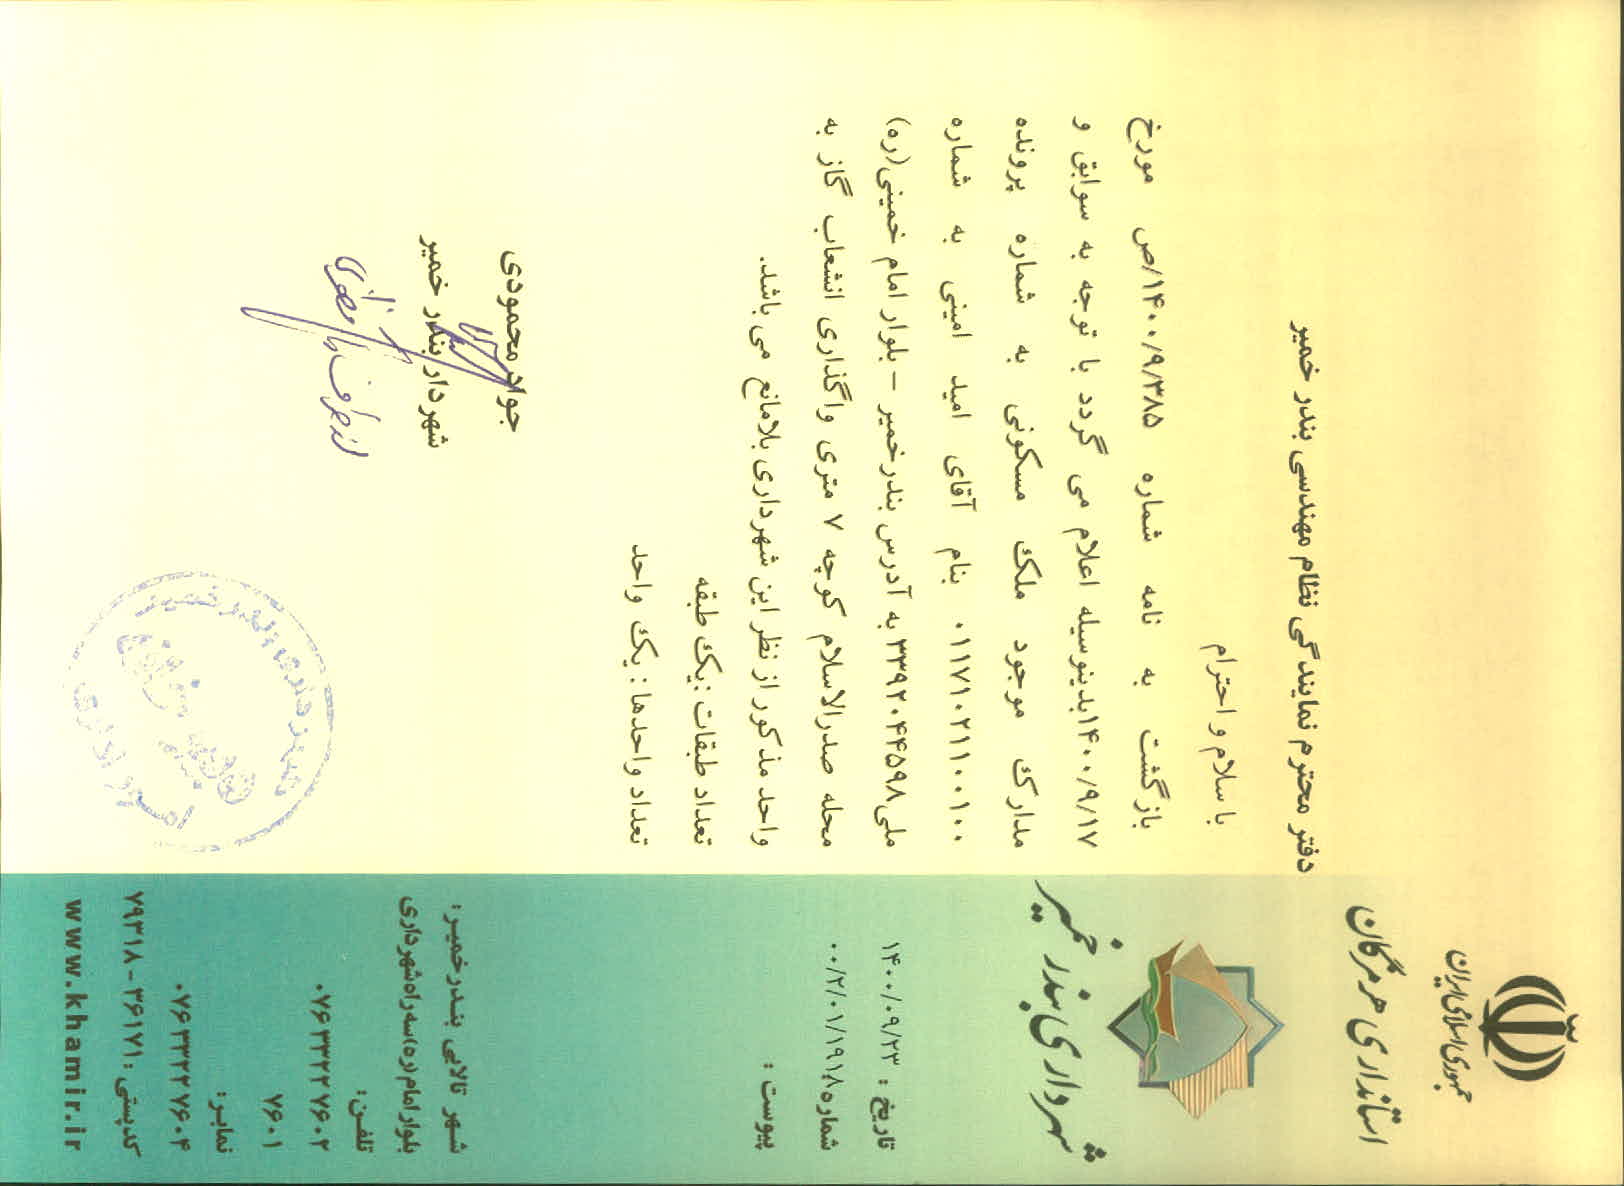 جمهوری اسلامی ایران
استانداری هرمزگان
شهرداری بندر خمیر
تاریخ : ۱۴۰۰/۰۹/۲۳
شماره ۰۰/۲/۰۱/۱۹۱۸
پیوست :
دفتر محترم نمایندگی نظام مهندسی بندر خمیر
با سلام و احترام
بازگشت به نامه شماره ۱۴۰۰/۹/۳۸۵/ص مورخ
۱۴۰۰/۹/۱۷بدینوسیله اعلام می گردد با توجه به سوابق و
مدارک موجود ملک مسکونی به شماره پرونده
۰۱۱۷۱۰۲۱۱۰۰۱۰۰ بنام آقای امید امینی به شماره
ملی۳۳۹۲۰۴۴۵۹۸ به آدرس بندرخمیر – بلوار امام خمینی(ره)
محله صدرالاسلام کوچه ۷ متری واگذاری انشعاب گاز به
واحد مذکور از نظر این شهرداری بلامانع می باشد.
تعداد طبقات :یک طبقه
تعداد واحدها : یک واحد
جواد محمودی
شهردار بندر خمیر
از طرف
شهرداری بندر خمیر
شهر تالابی بندرخمیر:
بلوار امام(ره)سه راه شهرداری
تلفن:
۰۷۶۳۳۲۲۷۶۰۲
۷۶۰۱
نمابر:
۰۷۶۳۳۲۲۷۶۰۴
کدپستی : ۳۶۱۷۱ - ۷۹۳۱۸
www.khamir.ir